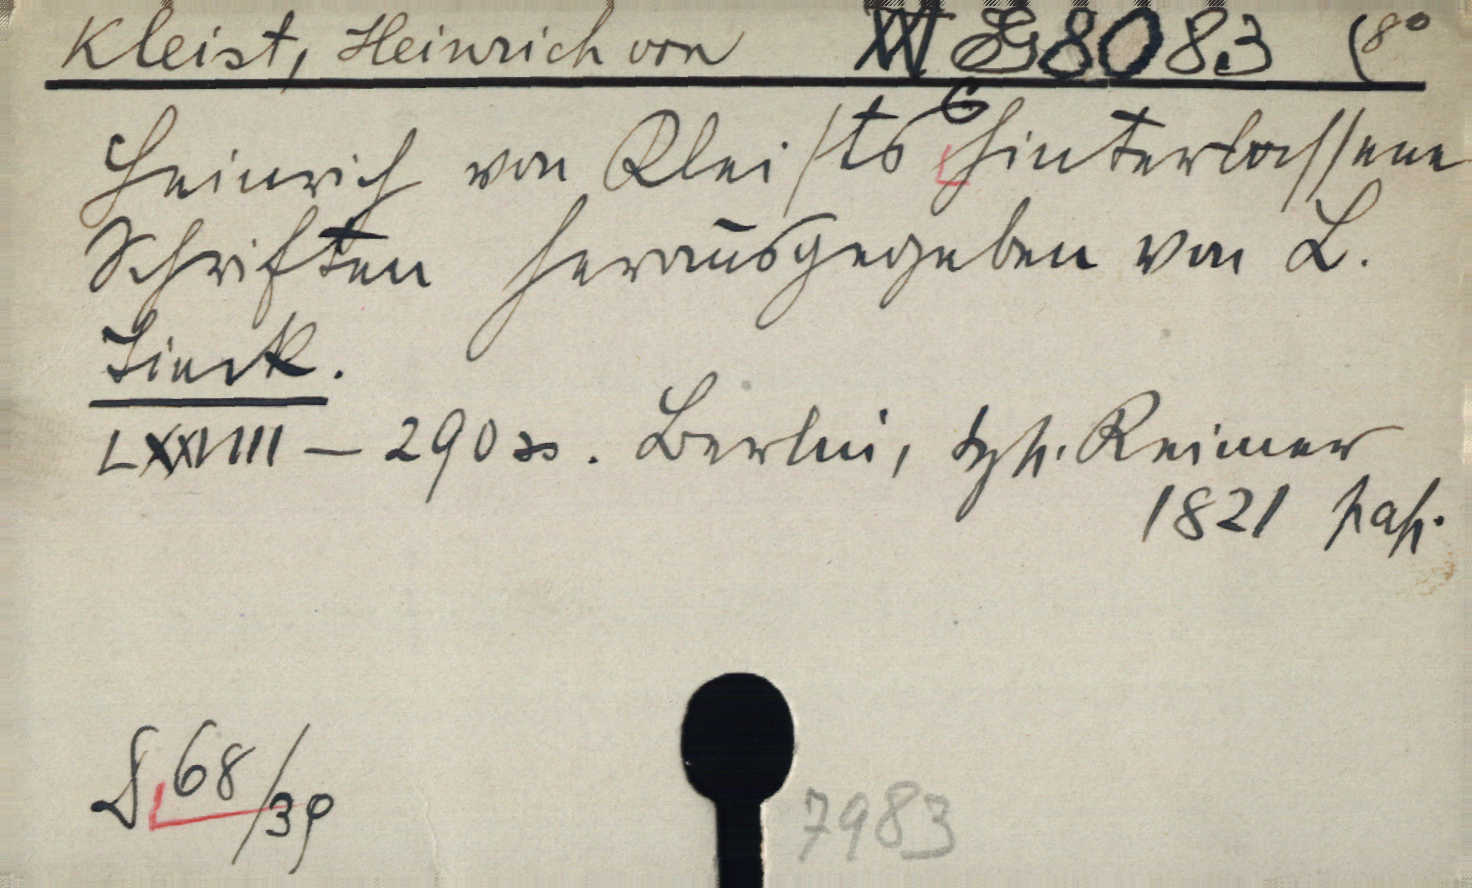 Kleist, Heinrich von XVI E 8083 (8°
6
Heinrich von Kleists hinterlassene
Schriften herausgegeben von L.
Tieck.
LXXVIII — 290 ss. Berlin, typ. Reimer
1821 pap.
L 68/39
7983